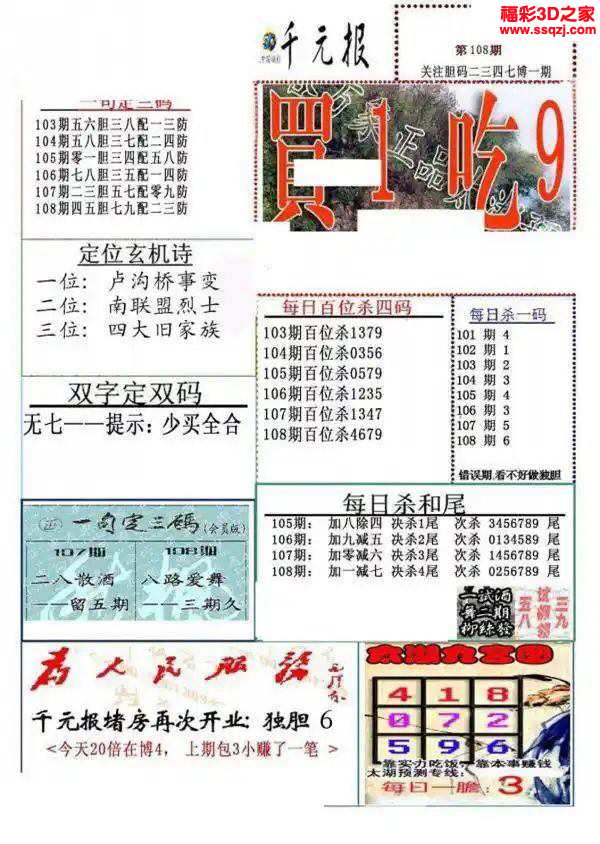 福彩3D之家
www.ssqzj.com
千元报
第108期
关注胆码二三四七博一期
買1吃9
一句定三码
103期五六胆三八配一三防
104期五八胆三七配二四防
105期零一胆三四配五八防
106期七八胆三五配一四防
107期二三胆五七配零九防
108期四五胆七九配二三防
定位玄机诗
一位: 卢沟桥事变
二位: 南联盟烈士
三位: 四大旧家族
每日百位杀四码
103期百位杀1379
104期百位杀0356
105期百位杀0579
106期百位杀1235
107期百位杀1347
108期百位杀4679
每日杀一码
101 期 4
102 期 1
103 期 2
104 期 3
105 期 4
106 期 5
107 期 5
108 期 6
错误期,看不好做独胆
双字定双码
无七——提示: 少买全合
每日杀和尾
105期: 加八除四 决杀1尾 次杀 3456789 尾
106期: 加九减五 决杀2尾 次杀 0134589 尾
107期: 加零减六 决杀3尾 次杀 1456789 尾
108期: 加一减七 决杀4尾 次杀 0256789 尾
一句定三碼(会员版)
107期
二八散酒
——留五期
108期
八路爱舞
——三期久
三九
五八
为人民服务
千元报堵房再次开业: 独胆 6
<今天20倍在博4, 上期包3小赚了一笔 >
太湖九宫图
4 1 8
0 7 2
5 9 6
靠实力吃饭,靠本事赚钱
太湖预测专线:
每日一胆: 3